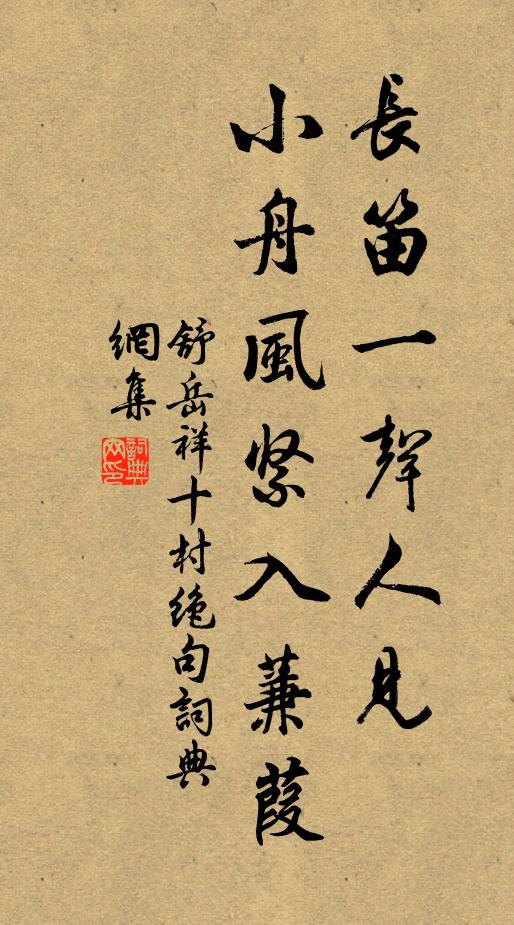 長笛一聲人見
小舟風緊入蒹葭
舒岳祥十村絕句詞典
網集
詞典
網印